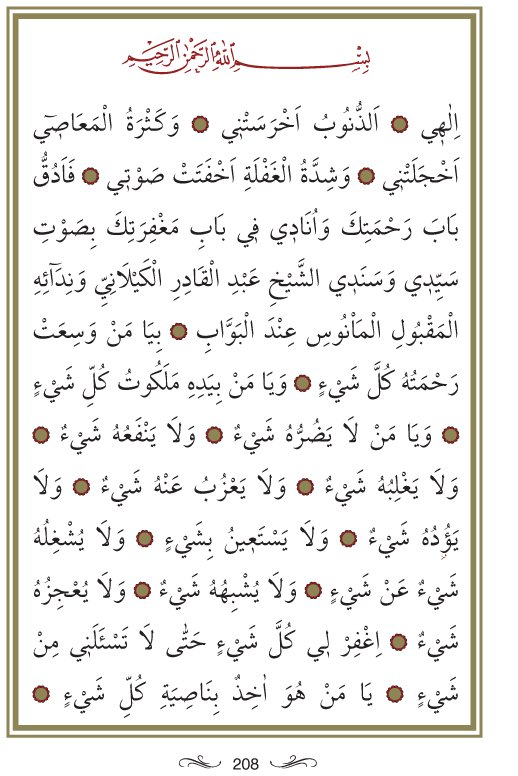 بِسْمِ اللّٰهِ الرَّحْمٰنِ الرَّحِيمِ
اِلٰهٖي ۞ اَلذُّنُوبُ اَخْرَسَتْنٖي ۞ وَكَثْرَةُ الْمَعَاصٖٓي
اَخْجَلَتْنٖي ۞ وَشِدَّةُ الْغَفْلَةِ اَخْفَتَتْ صَوْتٖي ۞ فَاَدُقُّ
بَابَ رَحْمَتِكَ وَاُنَادٖي فٖي بَابِ مَغْفِرَتِكَ بِصَوْتِ
سَيِّدٖي وَسَنَدٖي الشَّيْخِ عَبْدِ الْقَادِرِ الْكَيْلَانِيِّ وَنِدَٓائِهِ
الْمَقْبُولِ الْمَاْنُوسِ عِنْدَ الْبَوَّابِ ۞ بِيَا مَنْ وَسِعَتْ
رَحْمَتُهُ كُلَّ شَيْءٍ ۞ وَيَا مَنْ بِيَدِهِ مَلَكُوتُ كُلِّ شَيْءٍ
۞ وَيَا مَنْ لَا يَضُرُّهُ شَيْءٌ ۞ وَلَا يَنْفَعُهُ شَيْءٌ ۞
وَلَا يَغْلِبُهُ شَيْءٌ ۞ وَلَا يَعْزُبُ عَنْهُ شَيْءٌ ۞ وَلَا
يَؤُدُهُ شَيْءٌ ۞ وَلَا يَسْتَعٖينُ بِشَيْءٍ ۞ وَلَا يُشْغِلُهُ
شَيْءٌ عَنْ شَيْءٍ ۞ وَلَا يُشْبِهُهُ شَيْءٌ ۞ وَلَا يُعْجِزُهُ
شَيْءٌ ۞ اِغْفِرْ لٖي كُلَّ شَيْءٍ حَتّٰى لَا تَسْئَلَنٖي مِنْ
شَيْءٍ ۞ يَا مَنْ هُوَ اٰخِذٌ بِنَاصِيَةِ كُلِّ شَيْءٍ ۞
208